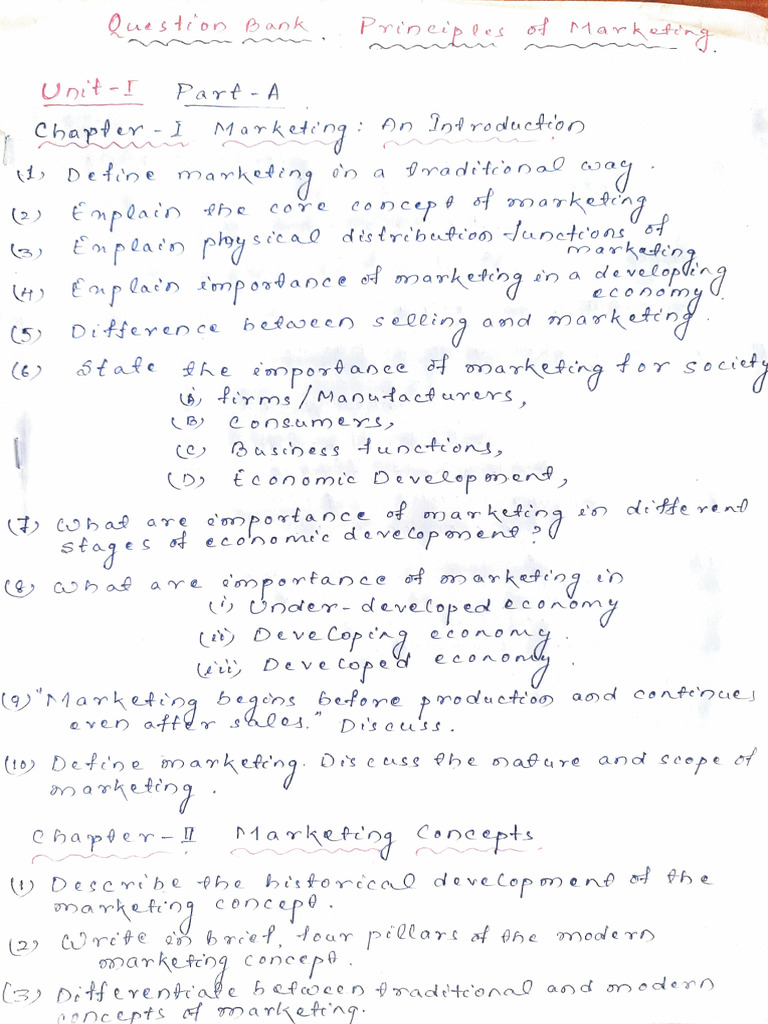 Question Bank. Principles of Marketing.
Unit-I Part-A
Chapter-I Marketing: An Introduction
(1) Define marketing in a traditional way.
(2) Explain the core concept of marketing
(3) Explain physical distribution functions of
marketing
(4) Explain importance of marketing in a developing
economy.
(5) Difference between selling and marketing.
(6) State the importance of marketing for society
(A) firms/Manufacturers,
(B) Consumers,
(C) Business functions,
(D) Economic Development,
(7) What are importance of marketing in different
stages of economic development?
(8) What are importance of marketing in
(i) Under-developed economy
(ii) Developing economy.
(iii) Developed economy.
(9) "Marketing begins before production and continues
even after sales." Discuss.
(10) Define marketing. Discuss the nature and scope of
marketing.
Chapter-II Marketing Concepts
(1) Describe the historical development of the
marketing concept.
(2) Write in brief, four pillars of the modern
marketing concept.
(3) Differentiate between traditional and modern
concepts of marketing.